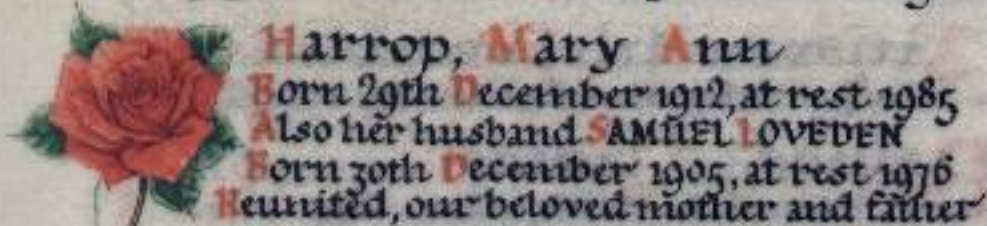 Harrop, Mary Ann
Born 29th December 1912, at rest 1985
Also her husband SAMUEL LOVEDEN
Born 30th December 1905, at rest 1976
Reunited, our beloved mother and father